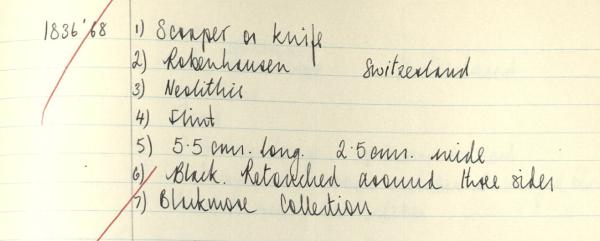 1836'68 1) Scraper or knife
2) Robenhausen Switzerland
3) Neolithic
4) Flint
5) 5.5 cms. long. 2.5 cms. wide
6) Black. Retouched around three sides
7) Blackmore Collection